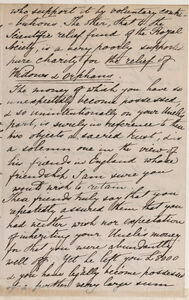 who support it by voluntary contri-
butions. The other, that is the
Scientific relief fund of the Royal
Society, is a very poorly support
pure charity for the relief of
Widows & Orphans.
The money of which you have so
unexpectedly become possessed,
& so unintentionally on your Uncle's
part, or would in reference to
his objects a sacred trust, is
a solemn one in the view of
his friends in England whose
friendship I am sure you
wd. wish to retain.
These friends truly say that you
repeatedly assured them that you
had neither wish nor expectation
of inheriting your Uncle's money
for that you were abundantly
well off. Yet he left you £3000
& you have legally become possessed
of a further very large sum